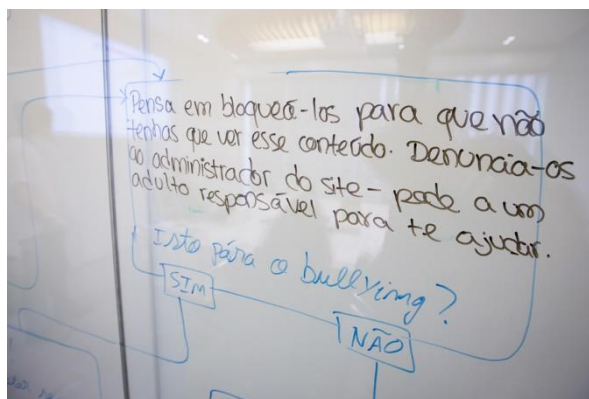 Pensa em bloqueá-los para que não
tenhas que ver esse conteúdo. Denuncia-os
ao administrador do site - pede a um
adulto responsável para te ajudar.
Isto pára o bullying?
SIM
NÃO